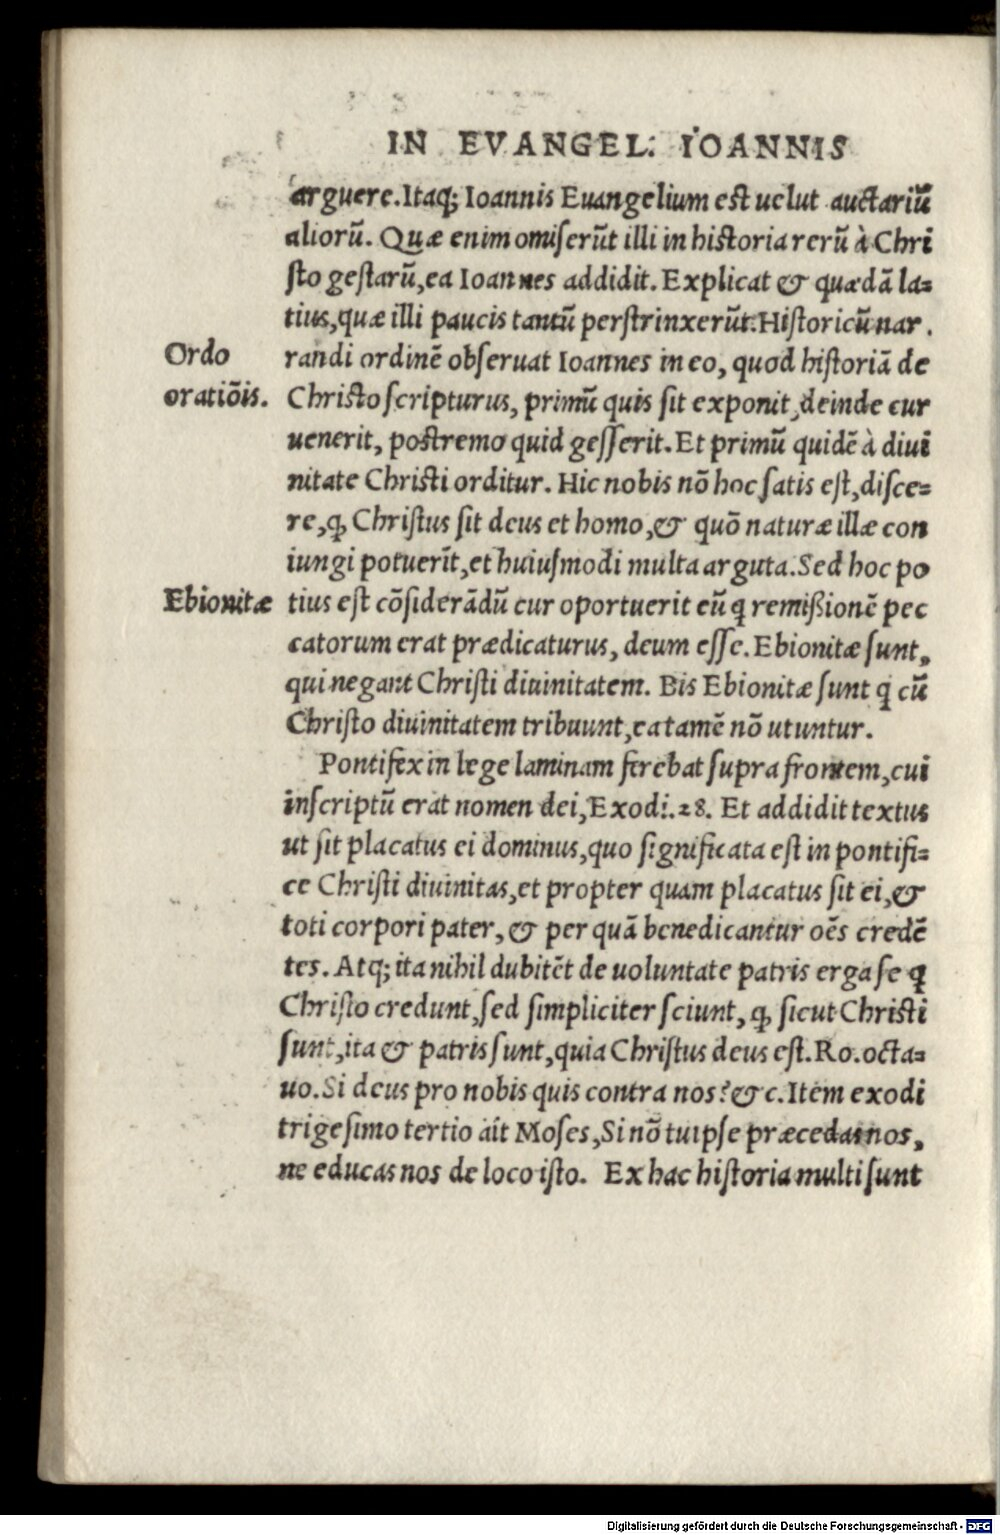 IN EVANGEL. IOANNIS
arguere. Itaq; Ioannis Euangelium est uelut auctariũ
aliorũ. Quæ enim omiserũt illi in historia rerũ à Chri
sto gestarũ, ea Ioannes addidit. Explicat & quædã la=
tius, quæ illi paucis tantũ perstrinxerũt. Historicũ nar.
Ordo
randi ordinẽ obseruat Ioannes in eo, quod historiã de
oratiõis.
Christo scripturus, primũ quis sit exponit, deinde cur
uenerit, postremo quid gesserit. Et primũ quidẽ à diui
nitate Christi orditur. Hic nobis nõ hoc satis est, disce=
re, ꝙ Christus sit deus et homo, & quõ naturæ illæ con
iungi potuerĩt, et huiusmodi multa arguta. Sed hoc po
Ebionitæ
tius est cõsiderãdũ cur oportuerit eũ q̃ remißionẽ pec
catorum erat prædicaturus, deum esse. Ebionitæ sunt,
qui negant Christi diuinitatem. Bis Ebionitæ sunt q̃ cũ
Christo diuinitatem tribuunt, ea tamẽ nõ utuntur.
Pontifex in lege laminam ferebat supra frontem, cui
inscriptũ erat nomen dei, Exodi. 28. Et addidit textus
ut sit placatus ei dominus, quo significata est in pontifi=
ce Christi diuinitas, et propter quam placatus sit ei, &
toti corpori pater, & per quã benedicantur oẽs credẽ
tes. Atq; ita nihil dubitẽt de uoluntate patris erga se q̃
Christo credunt, sed simpliciter sciunt, ꝙ sicut Christi
sunt, ita & patris sunt, quia Christus deus est. Ro. octa=
uo. Si deus pro nobis quis contra nos? & c. Item exodi
trigesimo tertio ait Moses, Si nõ tu ipse præcedas nos,
ne educas nos de loco isto. Ex hac historia multi sunt
Digitalisierung gefördert durch die Deutsche Forschungsgemeinschaft - DFG